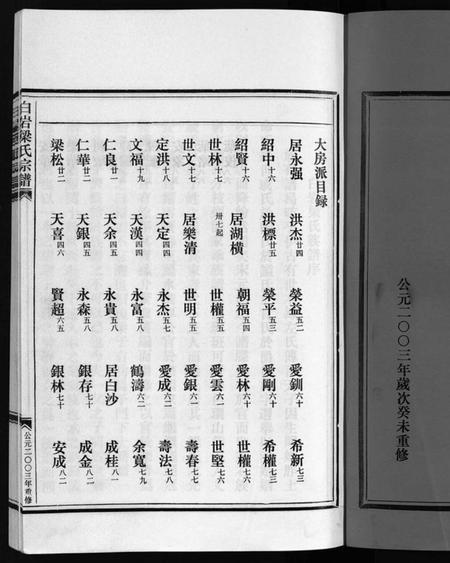 公元二〇〇三年歲次癸未重修
大房派目録
居永强 洪杰廿四 榮益五二 愛釧六十 希新七三
紹中十六 洪標廿五 榮平五三 愛剛六十 希權七三
紹賢十六 居湖横卅七起 朝福五四 愛林六十 世權七六
世林十七 世權五五 愛雲六一 世堅七六
世文十七 居樂清 世明五五 愛銀六二 壽春七七
定洪十八 天定四四 永杰五七 愛成六二 壽法七八
文福十九 天漢四四 永富五八 鶴濤六二 余寬七九
仁良廿一 天余四五 永貴五八 居白沙 成桂八一
仁華廿二 天銀四五 永森五八 銀存七十 成金八二
梁松廿二 天喜四六 賢超六五 銀林七十 安成八二
白岩梁氏宗譜
公元二〇〇三年重修